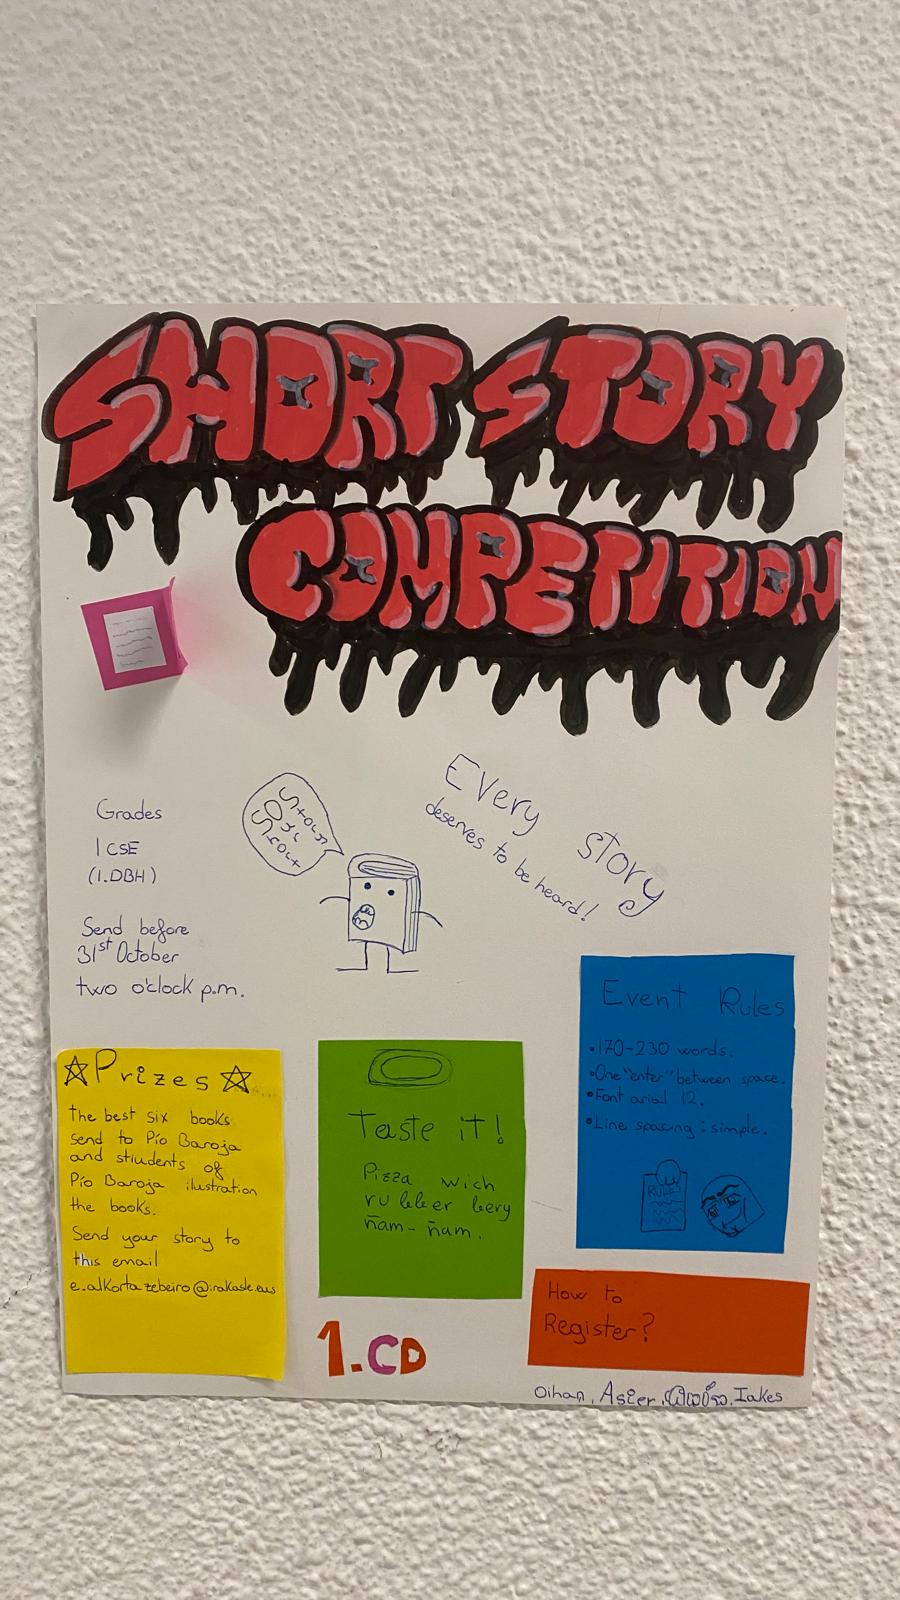 SHORT STORY
COMPETITION
Every story
deserves to be heard!
Grades
1 CSE
(1.DBH)
Send before
31st October
two o'clock p.m.
Event Rules
•170-230 words.
•One "enter" between space.
•Font arial 12.
•Line spacing: simple.
RULES
☆Prizes☆
the best six books
send to Pío Baroja
and stiudents of
Pío Baroja ilustration
the books.
Send your story to
this email
e.alkortazebeiro@irakasle.eus
Taste it!
Pizza wich
ñam-ñam.
How to
Register?
1.CD
Oihan, Asier, Iakes